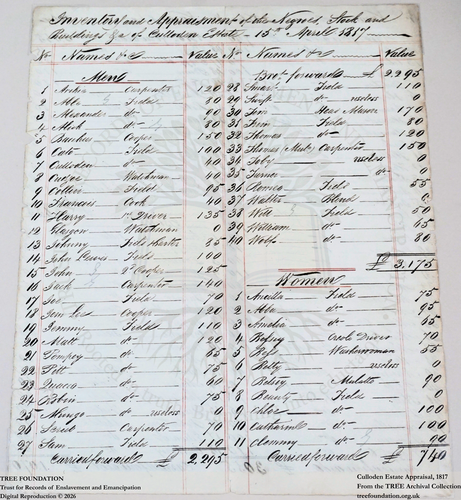 Inventory and Appraisement of the Negroes, Stock and
Buildings &a of Culloden Estate - 15th April 1817
No Names &c Value
Men
1 Archer Carpenter 120
2 Abba Field 80
3 Alexander do 80
4 Alick do 80
5 Bacchus Cooper 150
6 Cato Field 100
7 Culloden do 40
8 Cudjoe Watchman 40
9 Field 95
10 Francois Cook 40
11 Harry Driver 135
12 Glasgow Watchman 0
13 Johnny Field 85
14 John Field 100
15 John Cooper 125
16 Jack Carpenter 140
17 Field 70
18 Cooper 120
19 Jemmy Field 110
20 Matt do 110
21 Pompey do 65
22 Pitt do 75
23 Quaco do 60
24 Robin do 75
25 Mungo do useless 0
26 do 70
27 Sam Field 110
Carried forward £ 2,295
No Names &c Value
Brot forward £ 2295
28 Smart Field 110
29 Swift do useless 0
30 Jim Head Mason 170
31 Tim Field 80
32 Thomas do 120
33 Thomas Carpenter 150
34 Toby useless 0
35 Turner do 0
36 Romeo Field 55
37 Walter Blind 0
38 Will Field 50
39 William do 65
40 do 80
£ 3,175
Women
1 Ancilla Field 75
2 Abba do 95
3 Amelia do 65
4 Betsey Driver 70
5 Bess Washerwoman 55
6 Betty useless 0
7 Betsey Mulatto 90
8 Beauty Field 0
9 Chloe do 100
10 Catharine do 100
11 do 90
Carried forward £ 740
TREE FOUNDATION
Trust for Records of Enslavement and Emancipation
Digital Reproduction © 2026
Culloden Estate Appraisal, 1817
From the TREE Archival Collection
treefoundation.org.uk